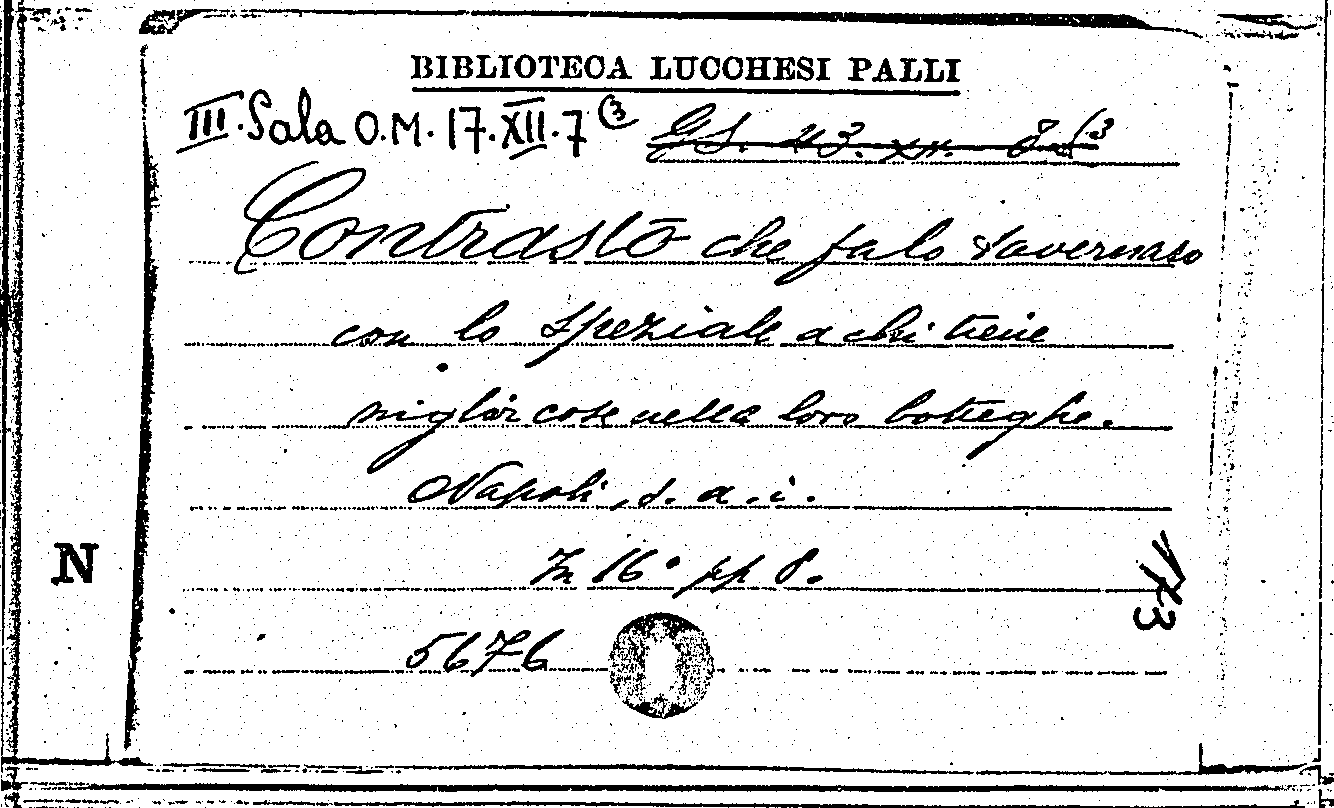 BIBLIOTECA LUCCHESI PALLI
III. Sala O.M. 17. XII. 7 (3 GS. 23. XII. 8 (3
Contrasto che fa lo tavernaro
con lo speziale a chi tiene
miglior cose nella loro botteghe.
Napoli, s. a. i.
In 16° pp 8.
N
5676